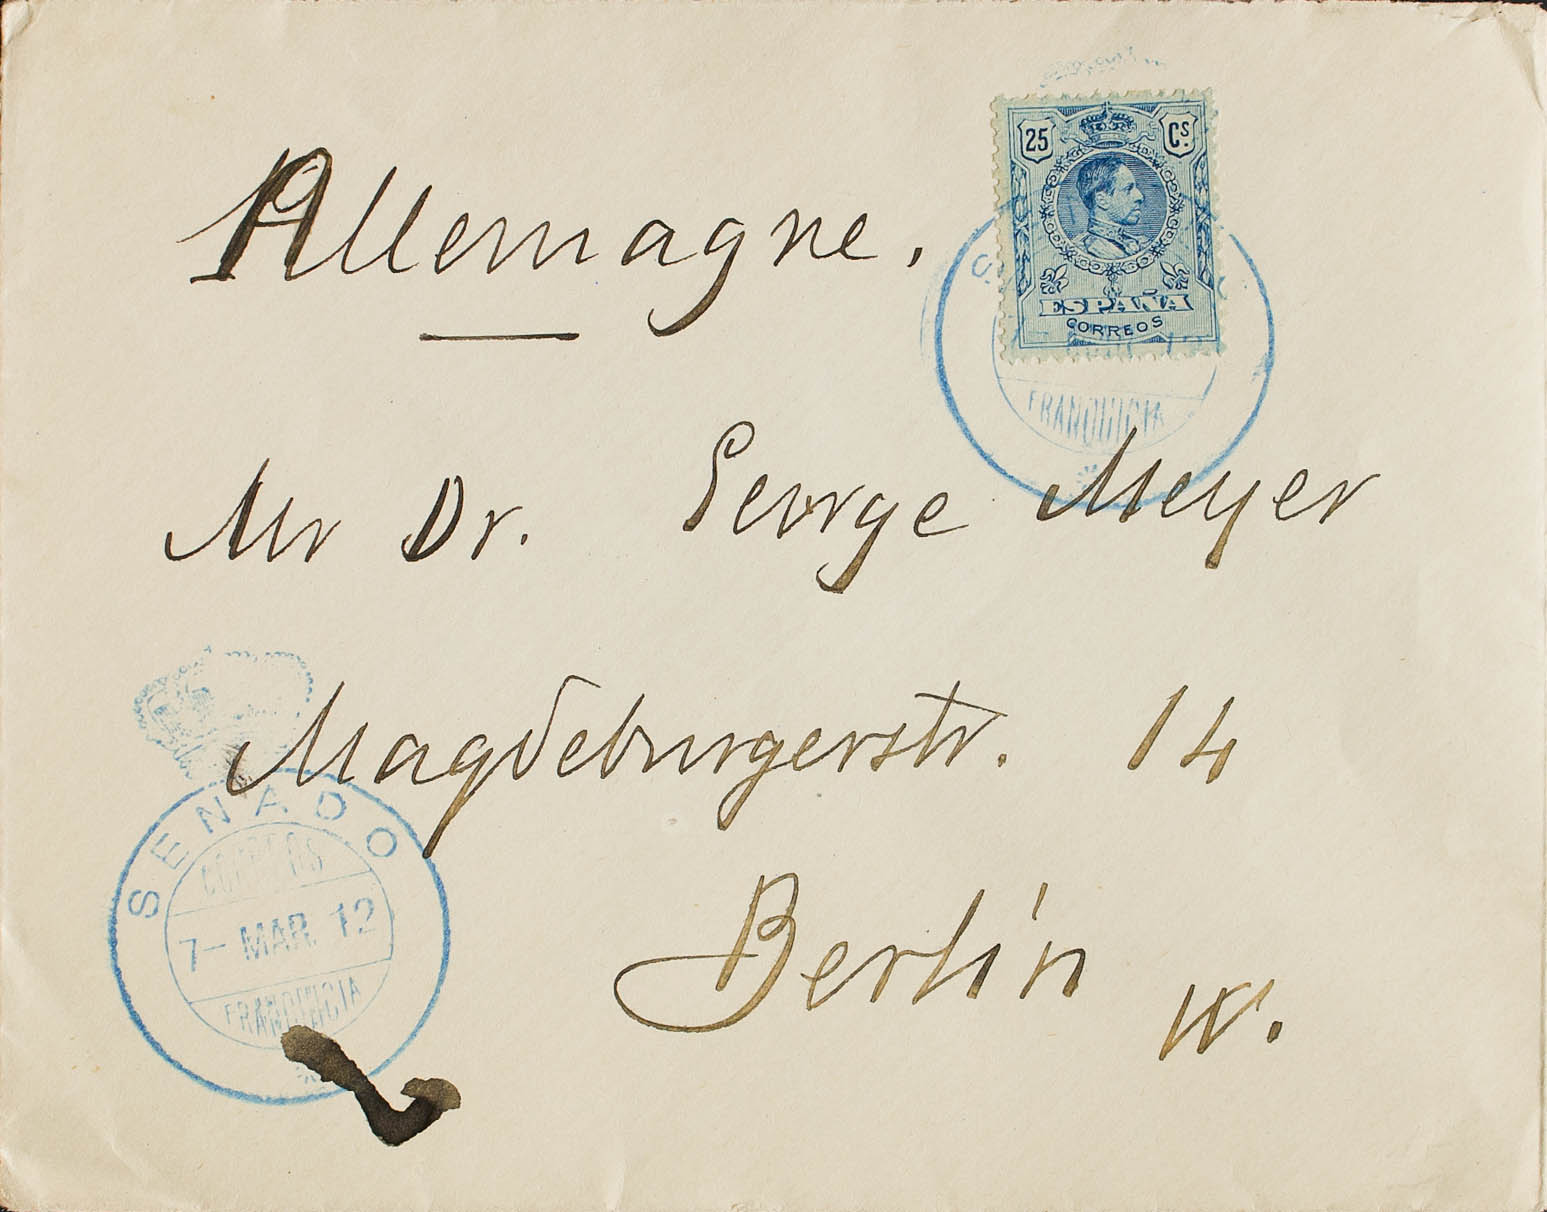 25 Cs.
ESPAÑA
CORREOS
FRANQUICIA
Allemagne.
Mr Dr. George Meyer
Magdeburgerstr. 14
Berlin
W.
SENADO
CORREOS
7- MAR. 12
FRANQUICIA